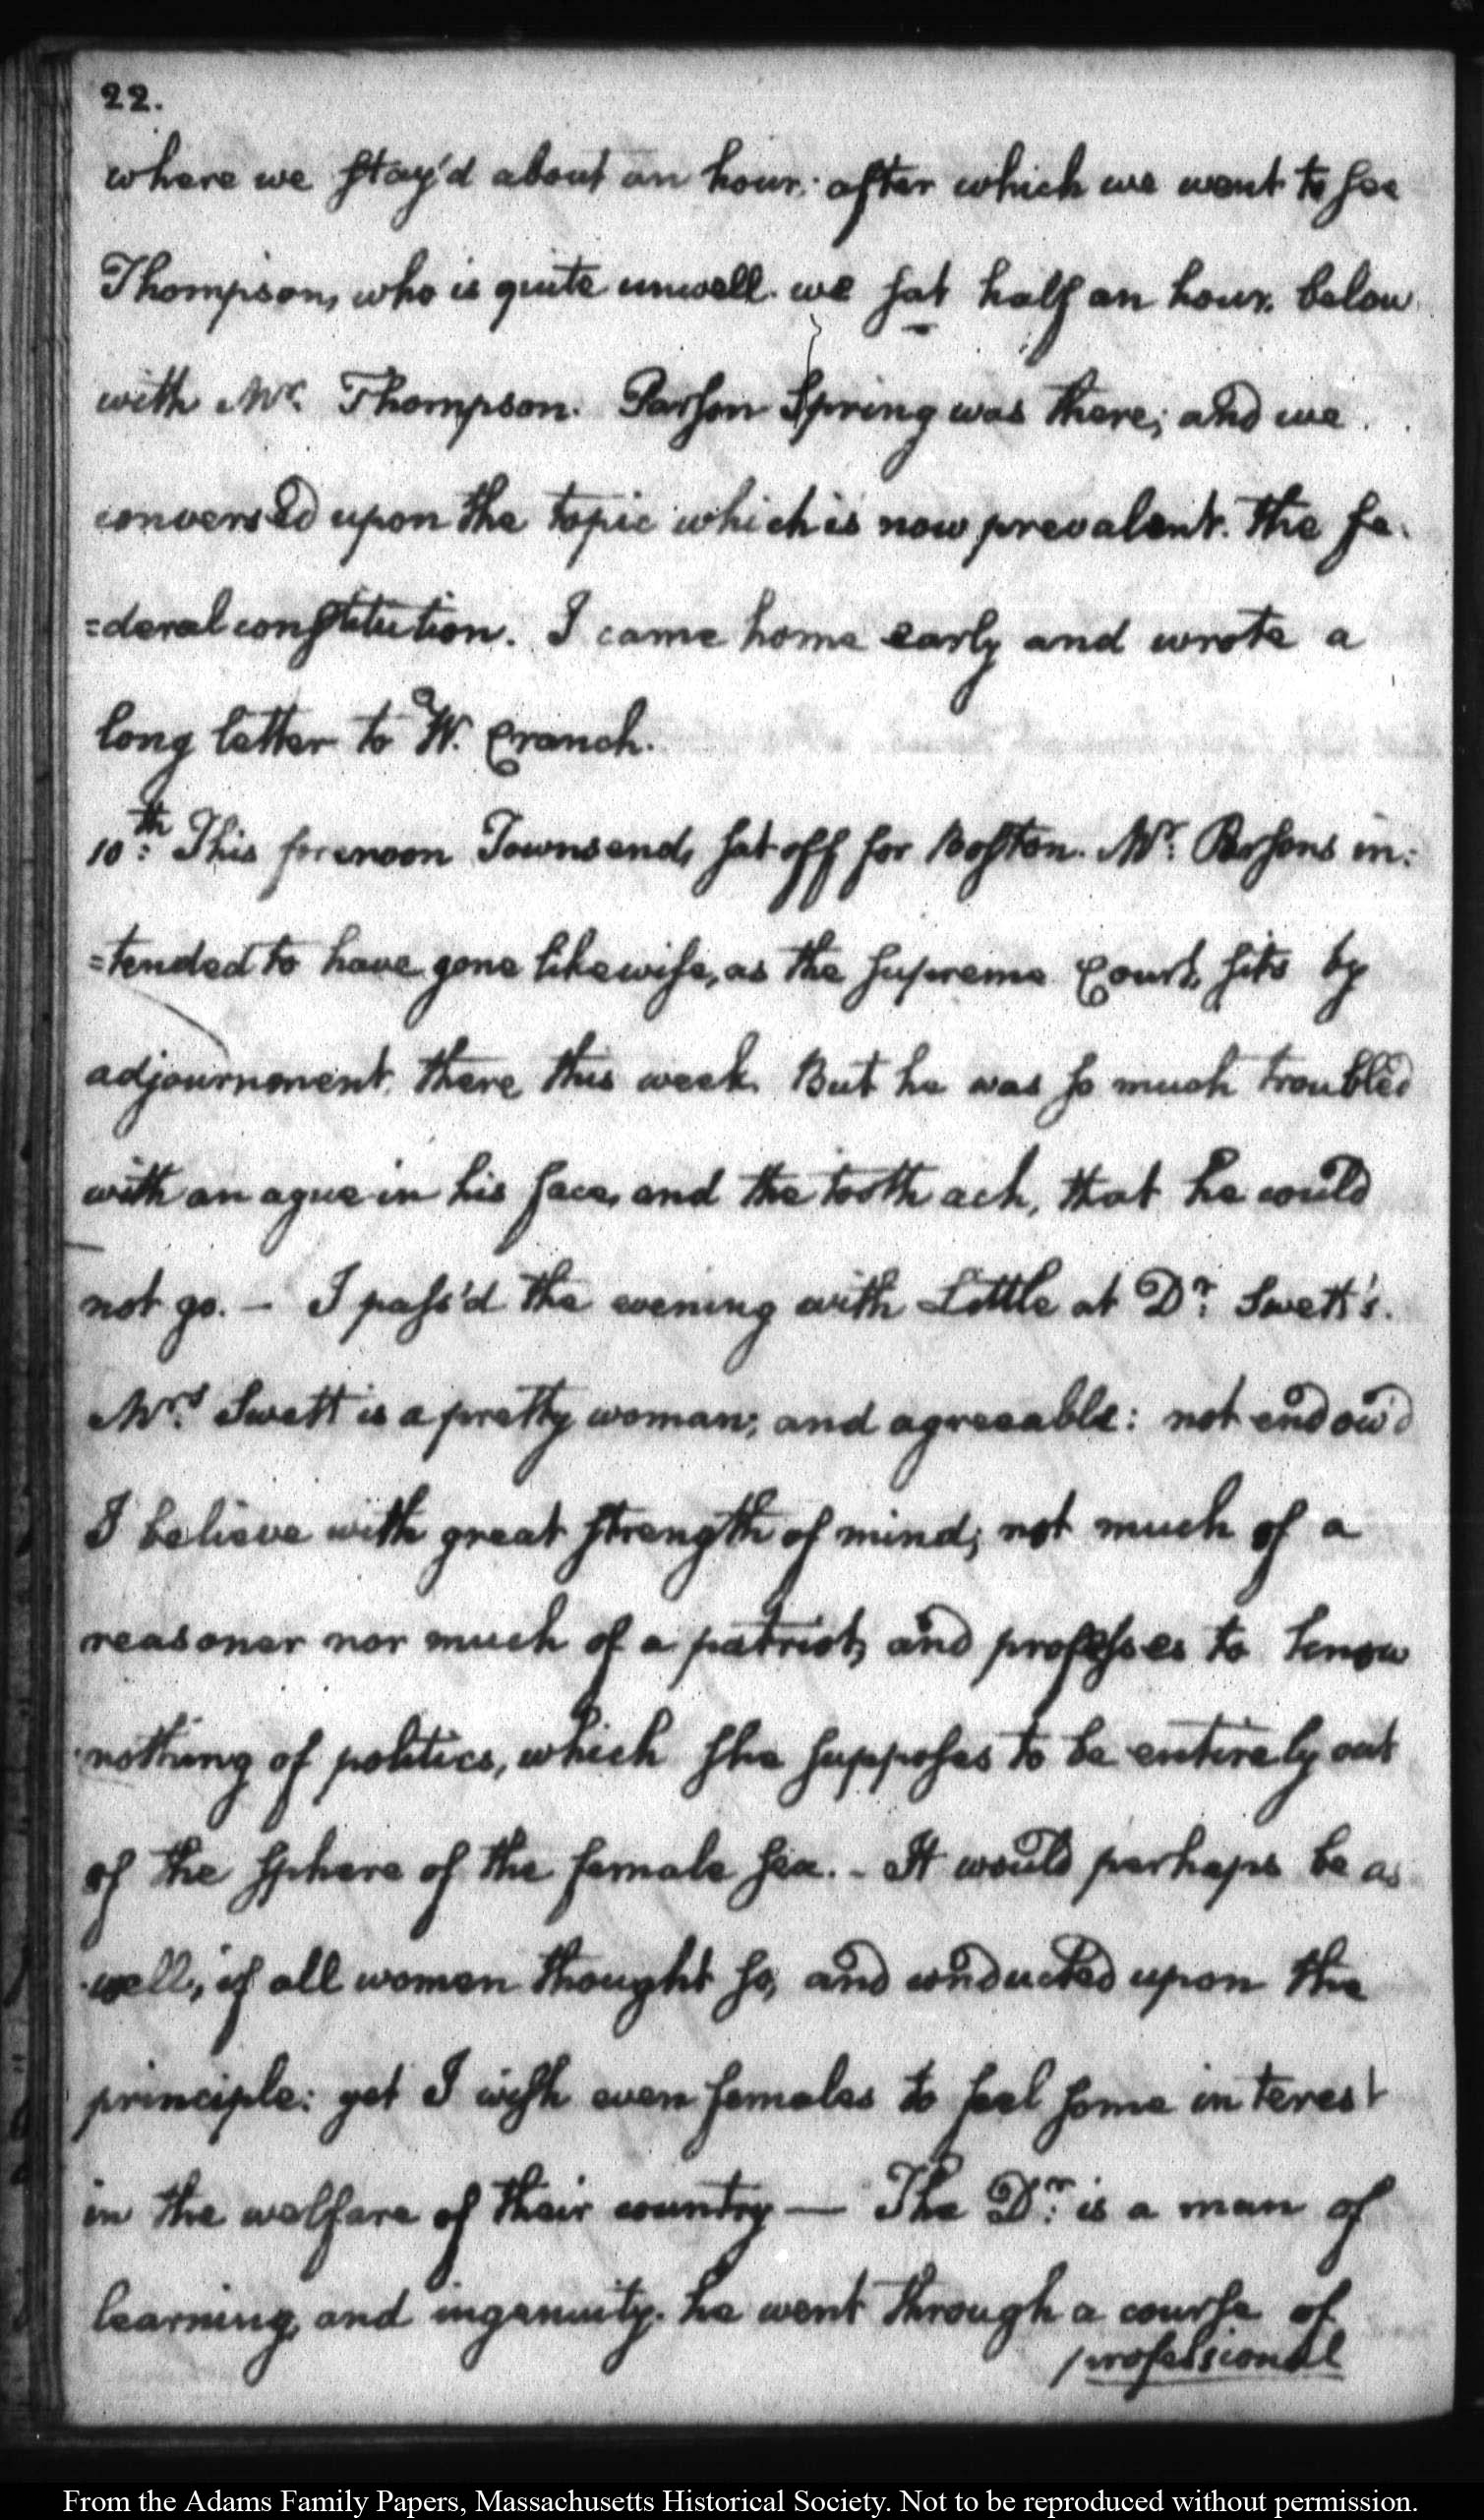 22.
where we stay'd about an hour: after which we went to see
Thompson, who is quite unwell. we sat half an hour. below
with Mr. Thompson. Parson Spring was there; and we
conversed upon the topic which is now prevalent. the fe-
=deral constitution. I came home early and wrote a
long letter to W. Cranch.
10th: This forenoon Townsend, sat off for Boston. Mr: Parsons in:
=tended to have gone likewise, as the supreme Court, sits by
adjournment, there this week. But he was so much troubled
with an ague in his face, and the tooth ach, that he could
not go. – I pass'd the evening with Little at Dr: Swett's.
Mrs: Swett is a pretty woman; and agreeable: not endow'd
I believe with great strength of mind; not much of a
reasoner nor much of a patriot, and professes to know
nothing of politics, which she supposes to be entirely out
of the sphere of the female sex. – It would perhaps be as
well, if all women thought so, and conducted upon the
principle: yet I wish even females to feel some interest
in the welfare of their country — The Dr: is a man of
learning, and ingenuity. he went through a course of
professional
From the Adams Family Papers, Massachusetts Historical Society. Not to be reproduced without permission.